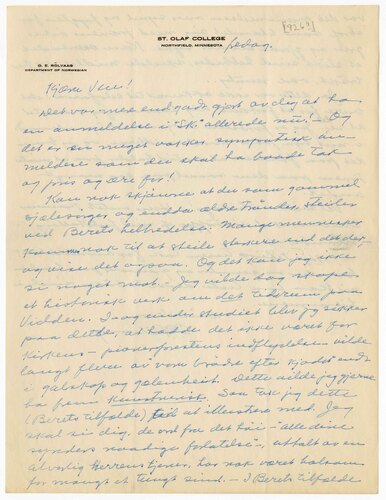 [926?]
ST. OLAF COLLEGE
NORTHFIELD, MINNESOTA
pedag.
O. E. RÖLVAAG
DEPARTMENT OF NORWEGIAN
Kjære Ven!
Det var mer end godt gjort av dig at ha
en anmeldelse i "Sk." allerede nu! - Og
det er en meget vakker, sympatisk an-
meldelse som du skal ha baade tak
og pris og ære for!
Kan nok skjønne at du som gammel
sjælesørger og endda ældre trønder steiler
ved Berets helbredelse. Mange mennesker
nok til at steile værre end det der
og vise det ogsaa. Og det kan jeg ikke
si noget mot. - Jeg vilde dog skape
et historisk verk om det tidsrum paa
Vidden. Under studiet blev jeg sikker
paa dette, at hadde det ikke været for
Kirkens - pionerprestens indflydelse vilde
langt flere av vore brødre efter kjødet endt
i galskap og galenheit. Dette vilde jeg gjerne
ha frem kunstnerisk. Saa tok jeg dette
(Berets tilfælde) til at illustrere med. Jeg
skal si dig, de ord fra det høie - "alle dine
synders naadige forlatelse" - uttalt av en
alvorlig Herrens tjener, har nok været balsom
for mangt et tungt sind. - I Berets tilfælde